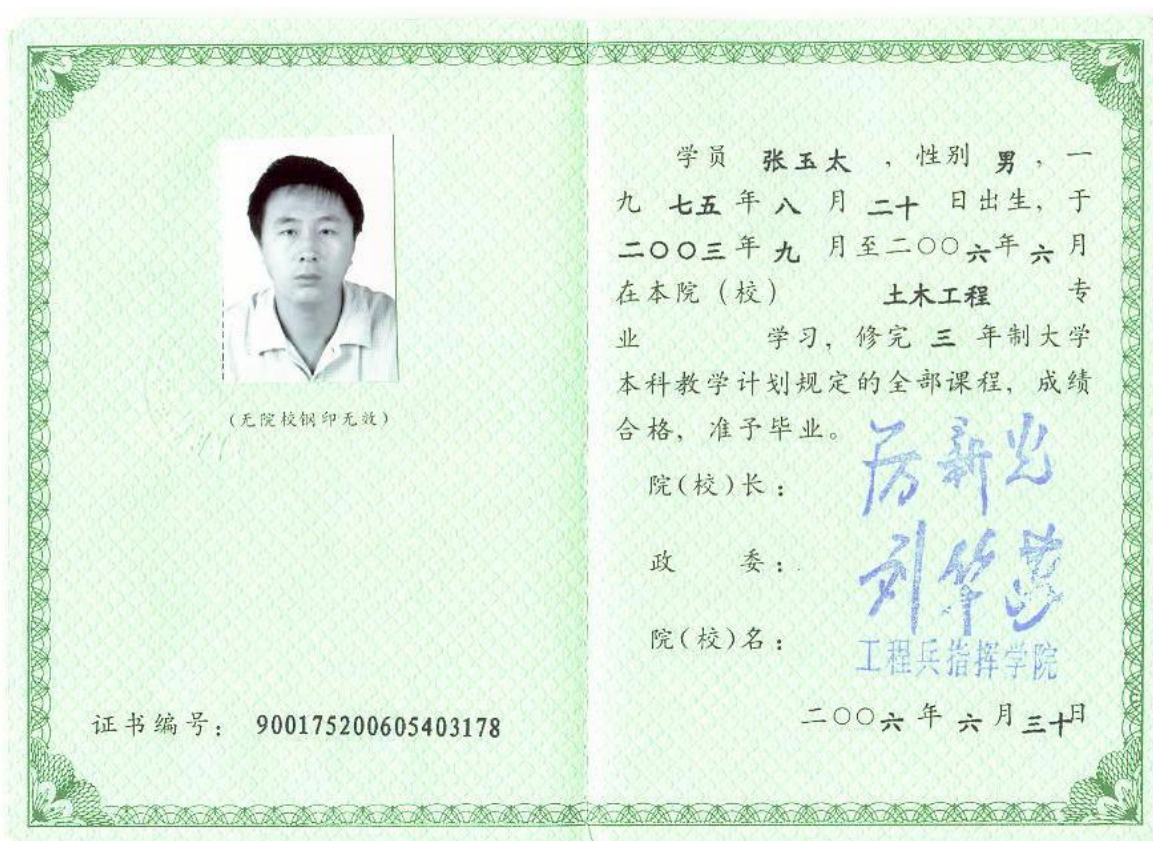 (无院校钢印无效)
证书编号：900175200605403178
学员 张玉太 ，性别 男，一
九 七五 年 八 月 二十 日出生，于
二〇〇三 年 九 月至二〇〇六年 六 月
在本院（校） 土木工程 专
业 学习，修完 三 年制大学
本科教学计划规定的全部课程，成绩
合格，准予毕业。
院(校)长： 厉新光
政 委： 刘华
院(校)名： 工程兵指挥学院
二〇〇六 年 六 月 三十日